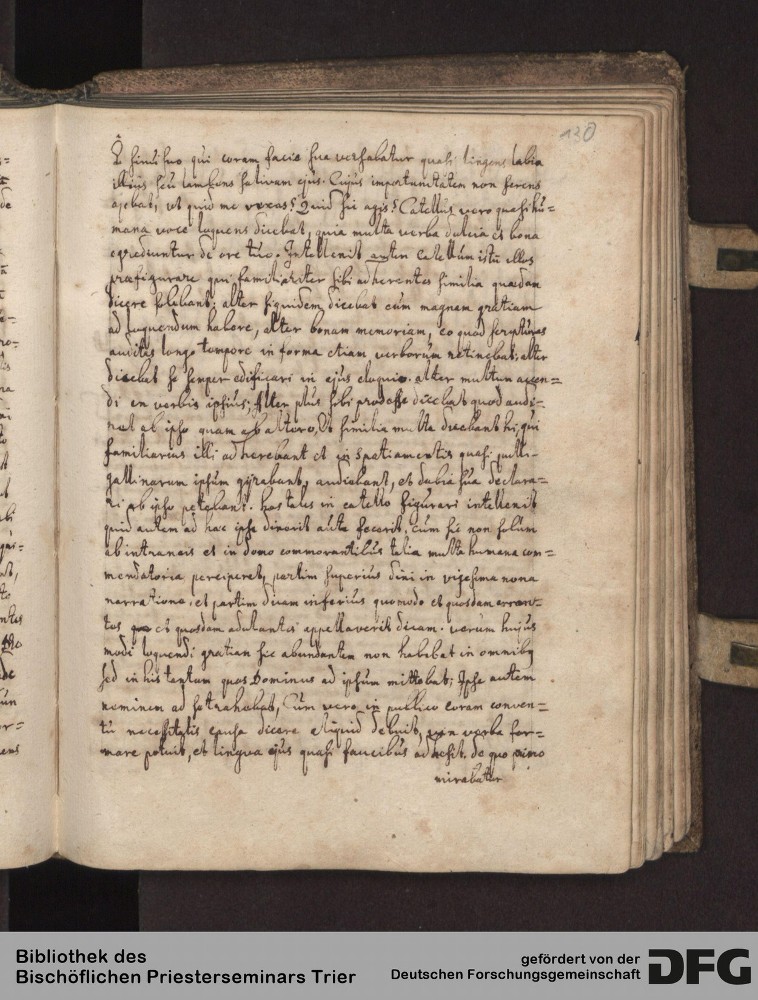 130
in sinu suo qui coram facie sua versabatur quasi lingens labia
illius seu lambens salivam ejus. Cujus importunitatem non ferens
ajebat, ut quid me vexas? Quid sic agis? Catellus vero quasi hu=
mana voce loquens dicebat, quia multa verba dulcia et bona
egrediuntur de ore tuo. Intellexit autem catellum istū illos
præfigurare qui familiariter sibi adherentes similia quædam
dicere solebant: alter siquidem dicebat eum magnam gratiam
ad loquendum habere, alter bonam memoriam, eo quod scripturas
auditas longo tempore in forma etiam verborum retinebat; alter
dicebat se semper edificari in ejus eloquio. alter multum accen=
di in verbis ipsius; Alter plus sibi prodesse dicebat quod audi=
ret ab ipso quam ab altero, Et similia multa dicebant hi, qui
familiarius illi adherebant et in spatiamentis quasi pulli
gallinarum ipsum gyrabant, audiebant, et dubia sua declara=
ri ab ipso petebant. hos tales in catello figurari intellexit
quid autem ad hæc ipse dixerit aut fecerit, cum sic non solum
ab intraneis et in domo commorantibus talia multa humana com=
mendatoria perciperet, partim superius dixi in vigesima nona
narratione, et partim dicam inferius quomodo et quosdam erran=
tes et quosdam adulantes appellaverit dicam. verum hujus
modi loquendi gratiam sic abundantem non habebat in omnibꝫ
sed in his tantum quos Dominus ad ipsum mittebat; Ipse autem
neminem ad se trahebat, Cum vero in publico coram conven=
tu necessitatis causa dicere aliquid debuit, non verba for=
mare potuit, et lingua ejus quasi faucibus adhæsit. de quo primo
mirabatur
Bibliothek des
Bischöflichen Priesterseminars Trier
gefördert von der
Deutschen Forschungsgemeinschaft
DFG